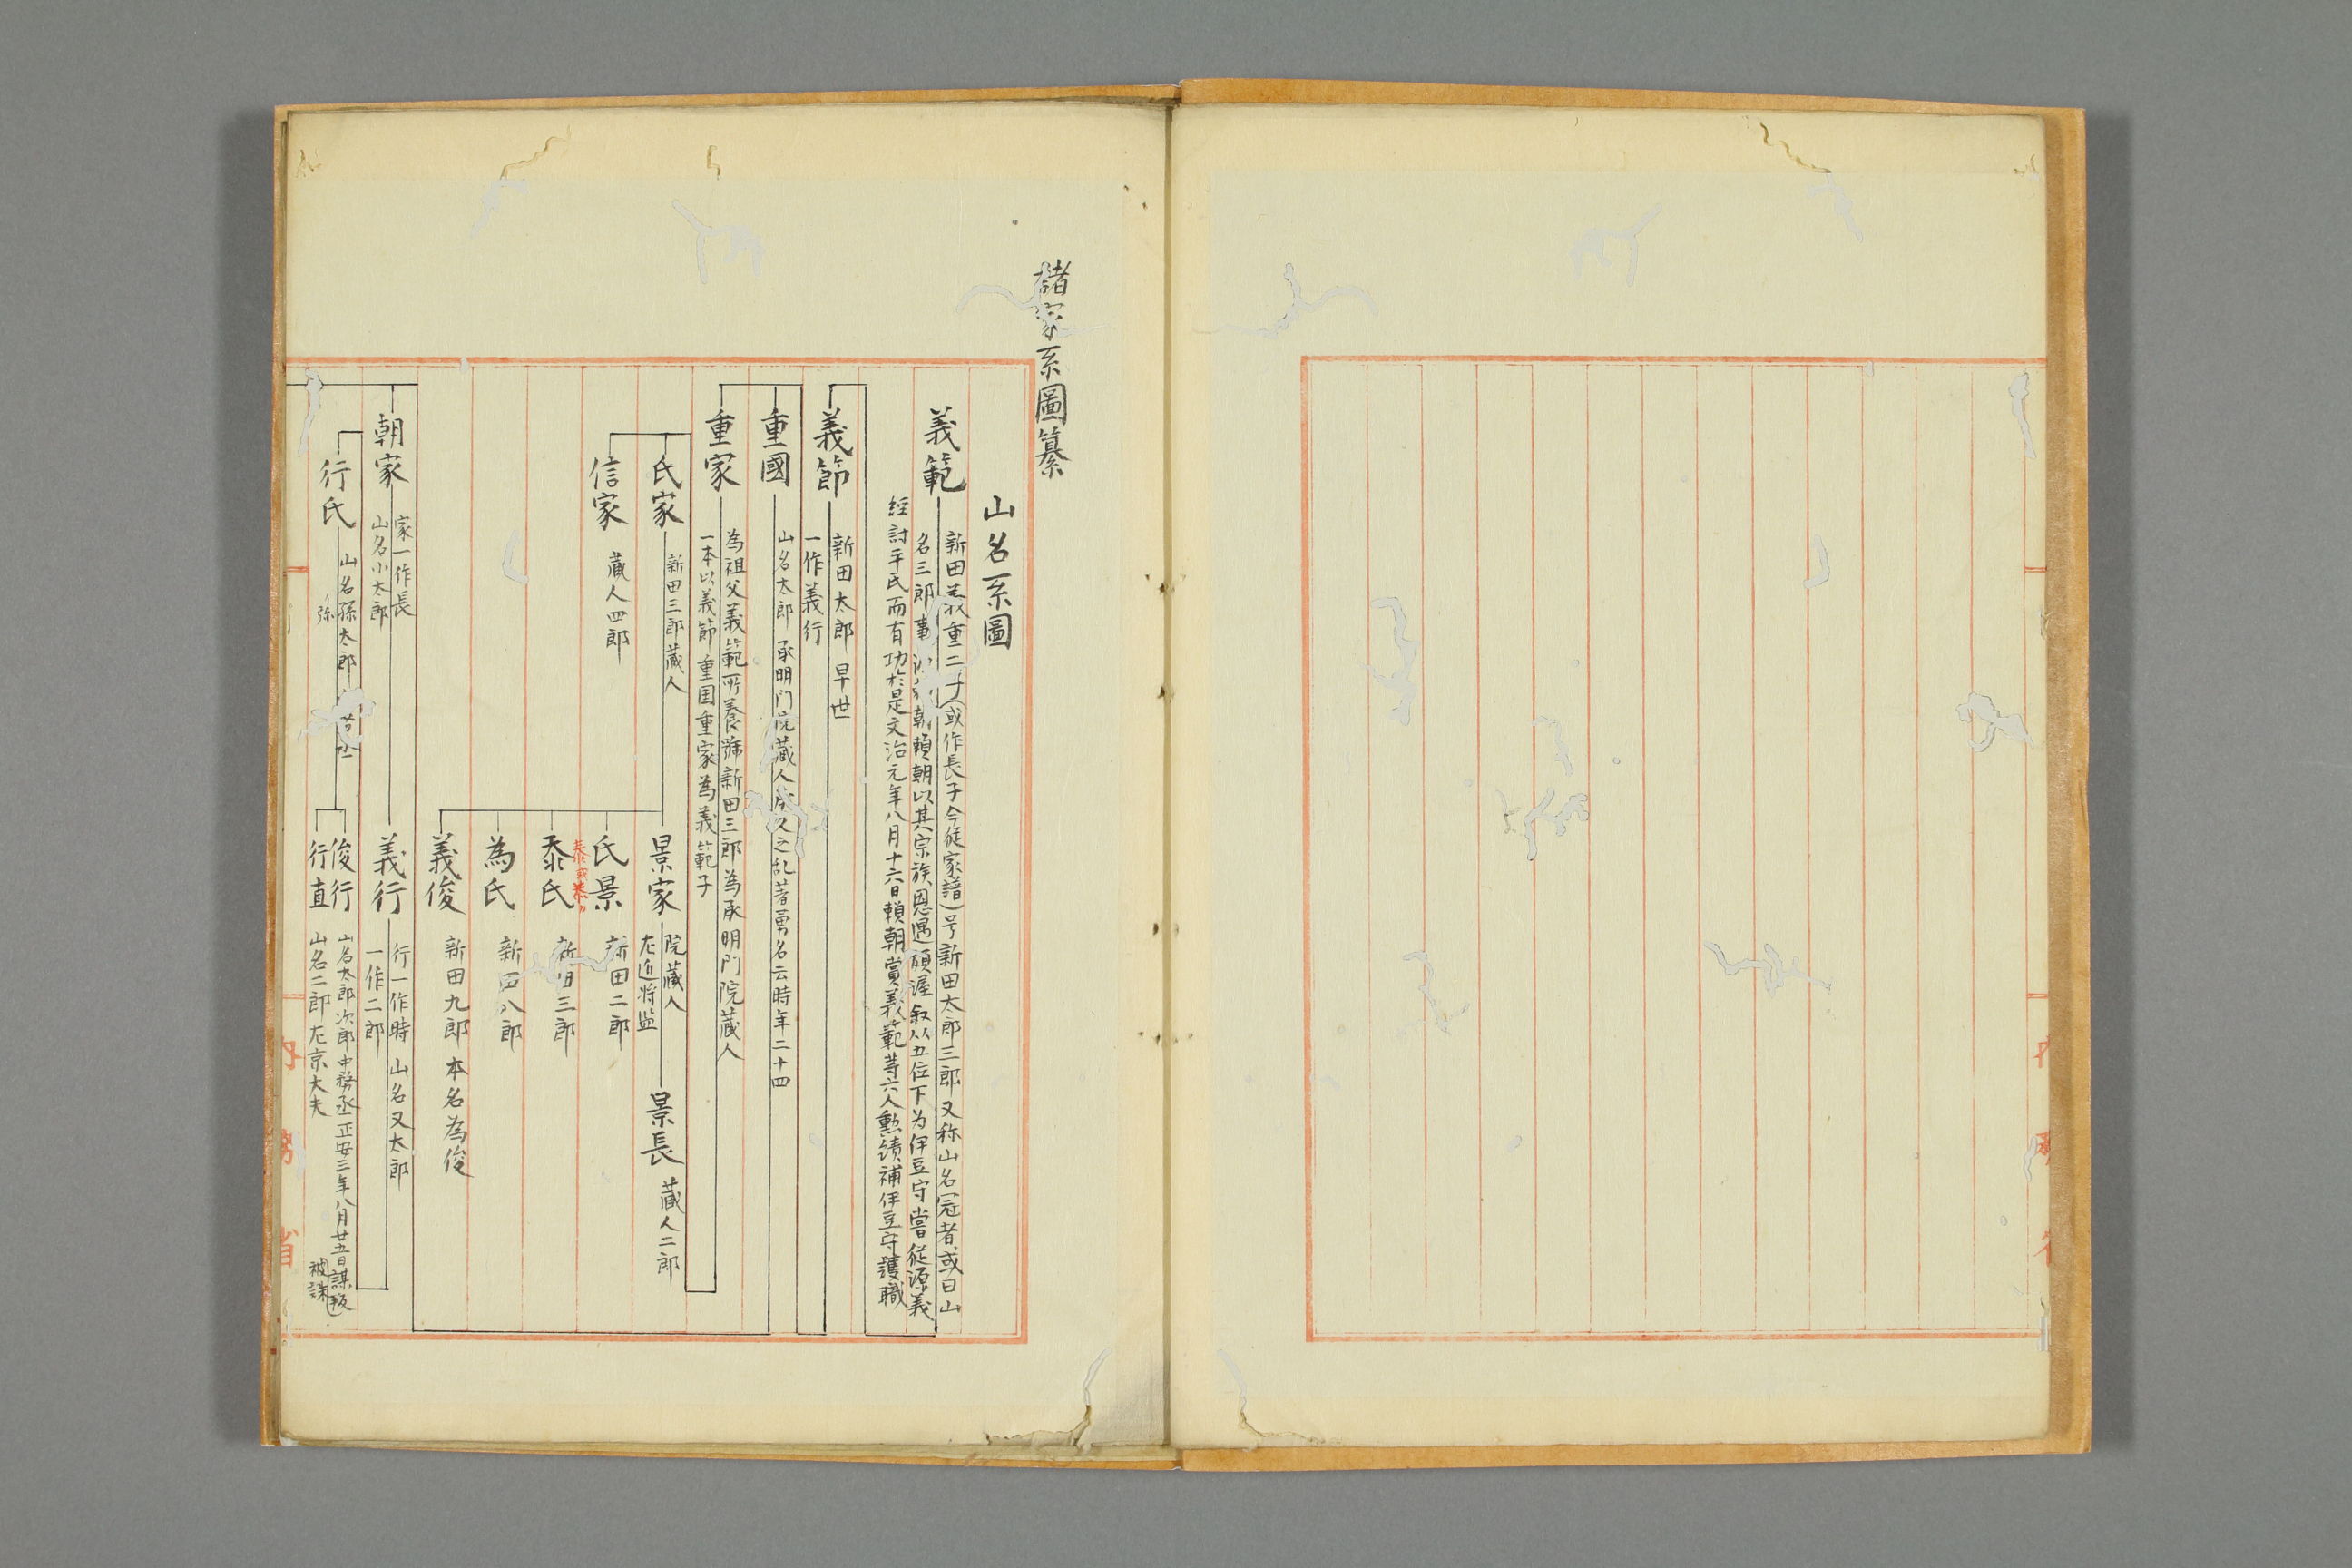 諸家系圖纂
山名系圖
義範
新田義重二子(或作長子今従家譜)号新田太郎三郎又称山名冠者或曰山
名三郎事 朝頼朝以其宗族恩遇頗渥叙従五位下为伊豆守嘗従源義
經討平氏而有功於是文治元年八月十六日頼朝賞義範等六人勲績補伊豆守護職
義節
新田太郎 早世
一作義行
重國
山名太郎 承明門院藏人 久之乱著勇名云時年二十四
重家
為祖父義範所養號新田三郎為承明門院藏人
一本以義節重国重家為義範子
氏家
新田三郎藏人
景家
院藏人
左近将监
景長
藏人二郎
信家
藏人四郎
氏景
新田二郎
泰氏
新田三郎
為氏
新田八郎
義俊
新田九郎 本名為俊
朝家
家一作長
山名小太郎
義行
行一作時 山名又太郎
一作二郎
行氏
山名孫太郎
弥
俊行
山名太郎次郎中務丞正安三年八月廿五日謀叛
被誅
行直
山名二郎左京大夫
内
務
省